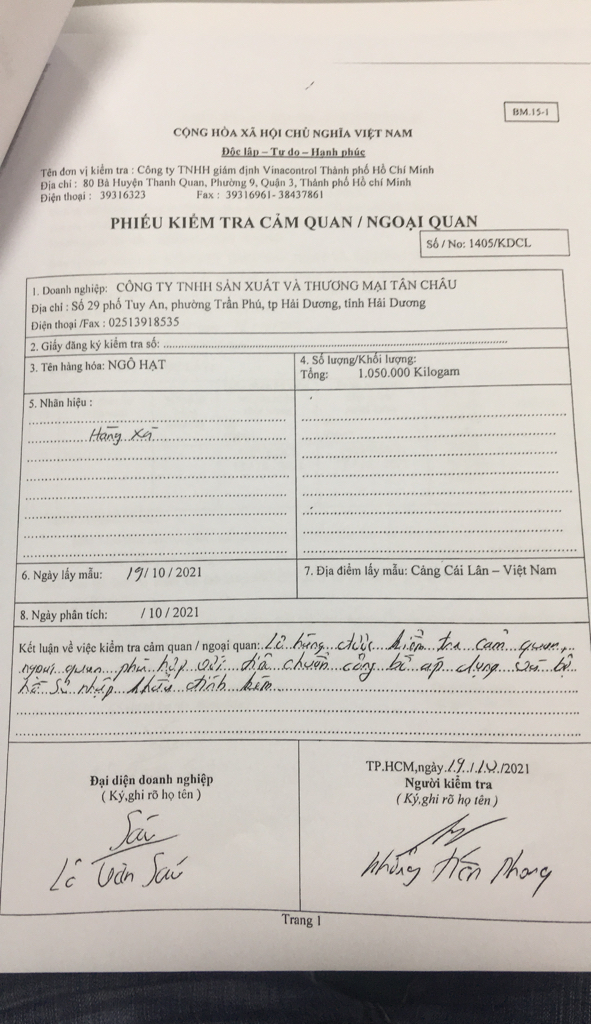 BM.15-1
CỘNG HÒA XÃ HỘI CHỦ NGHĨA VIỆT NAM
Độc lập – Tự do – Hạnh phúc
Tên đơn vị kiểm tra : Công ty TNHH giám định Vinacontrol Thành phố Hồ Chí Minh
Địa chỉ : 80 Bà Huyện Thanh Quan, Phường 9, Quận 3, Thành phố Hồ chí Minh
Điện thoại : 39316323 Fax : 39316961- 38437861
PHIẾU KIỂM TRA CẢM QUAN / NGOẠI QUAN
Số / No: 1405/KDCL
1. Doanh nghiệp: CÔNG TY TNHH SẢN XUẤT VÀ THƯƠNG MẠI TÂN CHÂU
Địa chỉ : Số 29 phố Tuy An, phường Trần Phú, tp Hải Dương, tỉnh Hải Dương
Điện thoại /Fax : 02513918535
2. Giấy đăng ký kiểm tra số:
3. Tên hàng hóa: NGÔ HẠT
4. Số lượng/Khối lượng:
Tổng: 1.050.000 Kilogam
5. Nhãn hiệu :
Hàng xá
6. Ngày lấy mẫu: 19/ 10 / 2021
7. Địa điểm lấy mẫu: Cảng Cái Lân – Việt Nam
8. Ngày phân tích: / 10 / 2021
Kết luận về việc kiểm tra cảm quan / ngoại quan: Lô hàng được kiểm tra cảm quan,
ngoại quan phù hợp với tiêu chuẩn công bố áp dụng và bộ
hồ sơ nhập khẩu đính kèm
Đại diện doanh nghiệp
( Ký,ghi rõ họ tên )
TP.HCM,ngày 19 / 10 /2021
Người kiểm tra
( Ký,ghi rõ họ tên )
Lê Văn Sáu
Tiến Phong
Trang 1